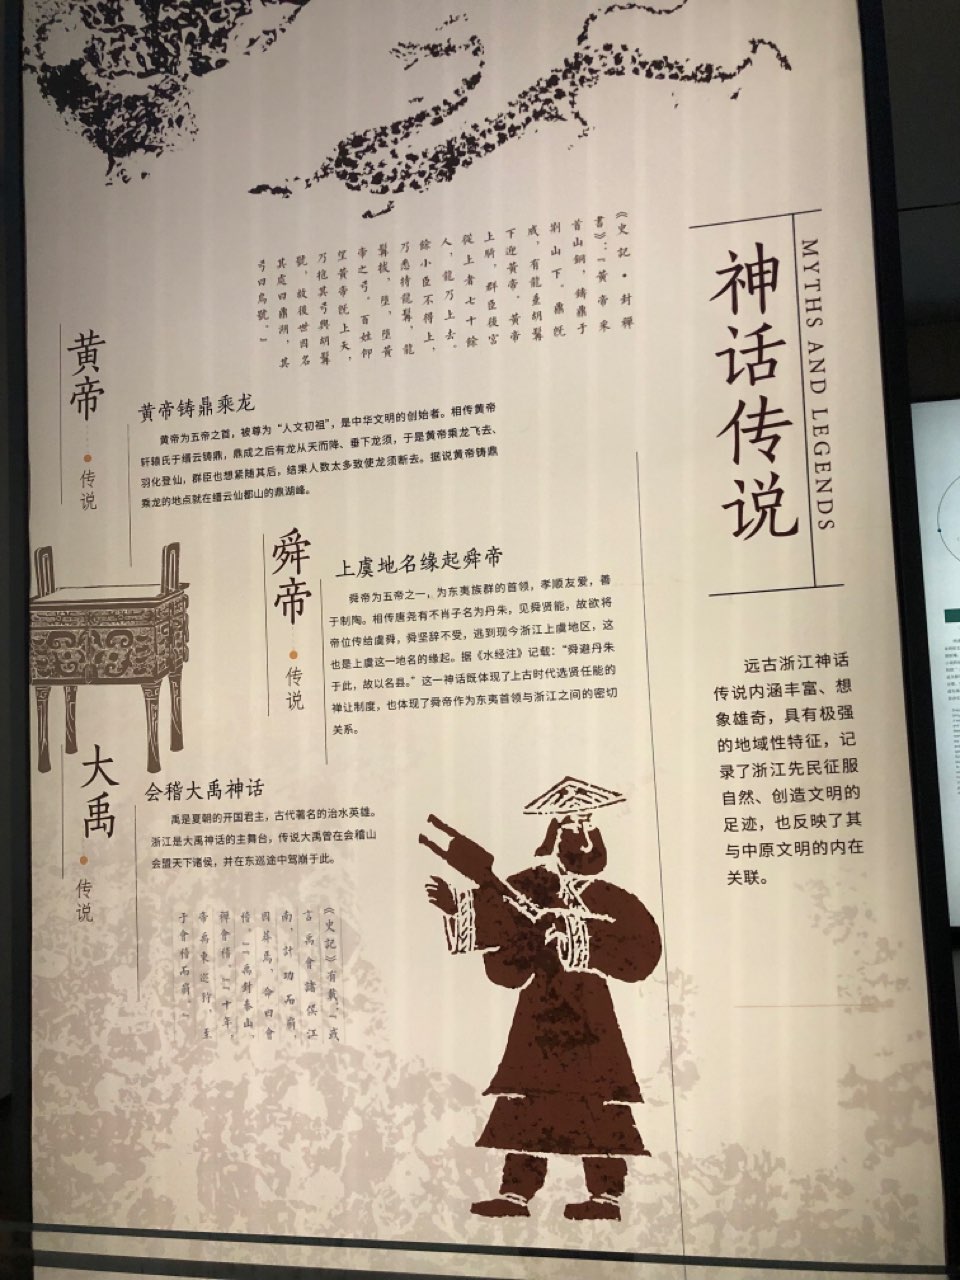 神话传说
MYTHS AND LEGENDS
远古浙江神话
传说内涵丰富、想
象雄奇，具有极强
的地域性特征，记
录了浙江先民征服
自然、创造文明的
足迹，也反映了其
与中原文明的内在
关联。
《史記·封禪
書》：“黃帝采
首山銅，鑄鼎于
荊山下。鼎既
成，有龍垂胡髯
下迎黃帝。黃帝
上騎，群臣後宮
從上者七十餘
人，龍乃上去。
餘小臣不得上，
乃悉持龍髯，龍
髯拔，墮，墮黃
帝之弓。百姓仰
望黃帝既上天，
乃抱其弓與胡髯
號，故後世因名
其處曰鼎湖，其
弓曰烏號。”
黄帝
传说
黄帝铸鼎乘龙
黄帝为五帝之首，被尊为“人文初祖”，是中华文明的创始者。相传黄帝
轩辕氏于缙云铸鼎，鼎成之后有龙从天而降、垂下龙须，于是黄帝乘龙飞去、
羽化登仙，群臣也想紧随其后，结果人数太多致使龙须断去。据说黄帝铸鼎
乘龙的地点就在缙云仙都山的鼎湖峰。
舜帝
传说
上虞地名缘起舜帝
舜帝为五帝之一，为东夷族群的首领，孝顺友爱，善
于制陶。相传唐尧有不肖子名为丹朱，见舜贤能，故欲将
帝位传给虞舜，舜坚辞不受，逃到现今浙江上虞地区，这
也是上虞这一地名的缘起。据《水经注》记载：“舜避丹朱
于此，故以名县。”这一神话既体现了上古时代选贤任能的
禅让制度，也体现了舜帝作为东夷首领与浙江之间的密切
关系。
大禹
传说
会稽大禹神话
禹是夏朝的开国君主，古代著名的治水英雄。
浙江是大禹神话的主舞台，传说大禹曾在会稽山
会盟天下诸侯，并在东巡途中驾崩于此。
《史記》有載：“或
言禹會諸侯江
南，計功而崩，
因葬焉，命曰會
稽。”“禹封泰山，
禪會稽。”“十年，
帝禹東巡狩，至
于會稽而崩。”